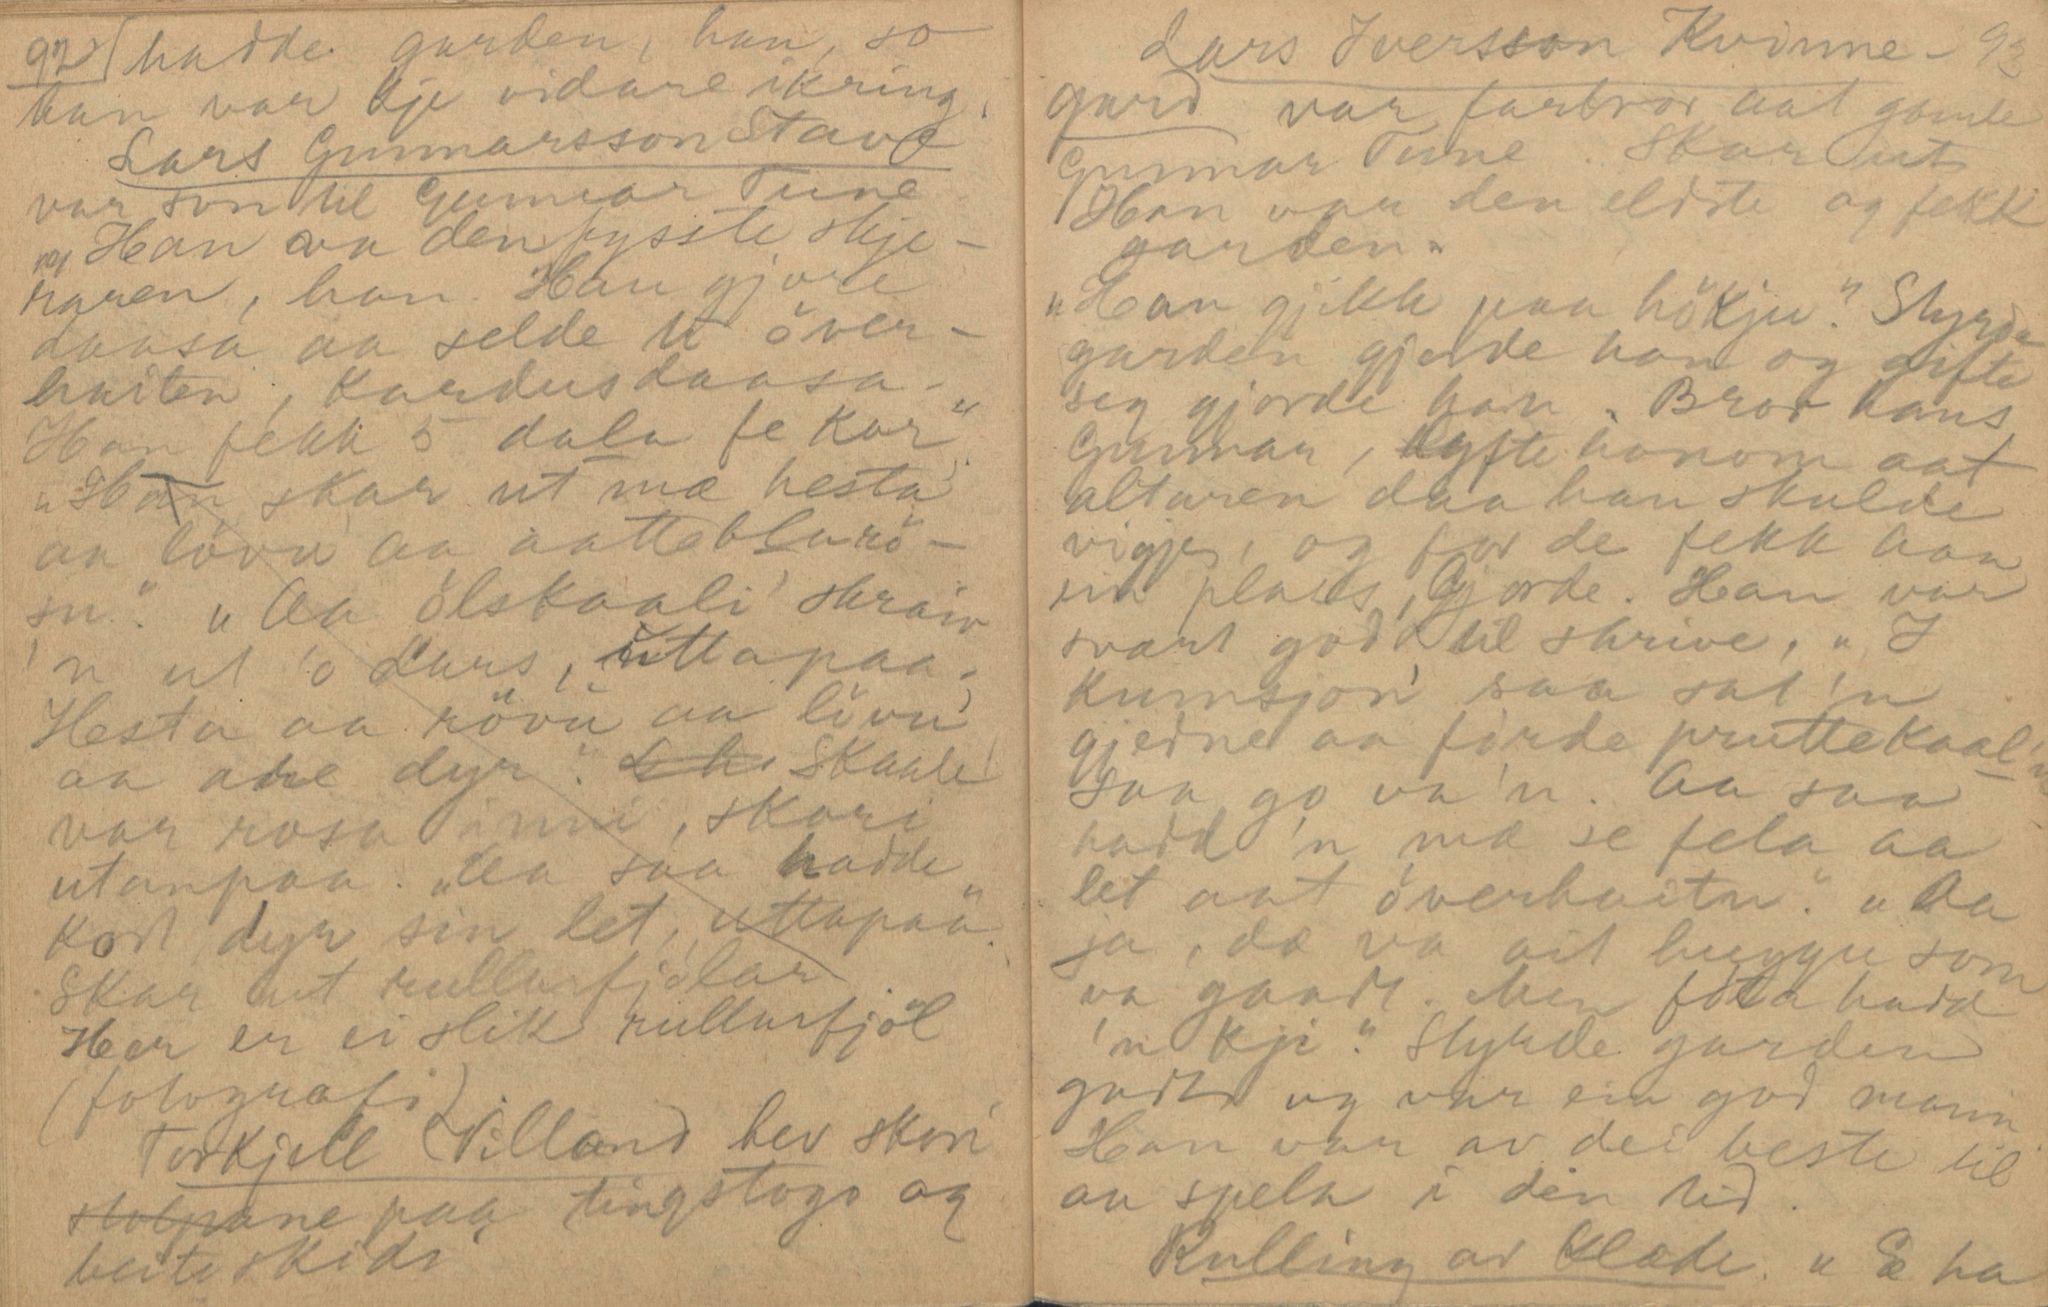 92 hadde garden, han, so
han var kje vidare ikring.
Lars Gunnarsson Stave
var son til Gunnar Tune
"Han va den fysste skje-
raren, han. Han gjore
daasa aa selde te över-
haiten, Kardusdaasa.
Han fekk 5 dala fe kar".
"Han skar ut mæ hesta
aa lövu aa aatteblarö-
su". "Aa ölskaali skraiv
'n ut 'o Lars, uttapaa.
Hesta aa rövu aa lövu
aa are dyr". Skaale
var rosa inni, skori
utanpaa. "Aa saa hadde
kort dyr sin let, uttapaa".
Skar ut rullurfjölar
Her er ei slik rullurfjöl
(fotografi)
Torkjell Villand hev skori
stolpane paa tingstogo og
beiteskidi
Lars Iversson Kvinne- 93
gard var farbror aat gamle
Gunnar Tune. Skar ut
Han var den eldste og fekk
garden.
"Han gjikk paa hökju." Styrde
garden gjorde han og gifte
seg gjorde han. Bror hans
Gunnar, lyfte honom aat
altaren daa han skulde
vigjes, og for de fekk han
ein plass, Gjorde. Han var
svart god til skrive, "I
Kumsjon' saa sat 'n
gjedne aa förde pruttekaal'n
saa go va 'n. Aa saa
hadd 'n mæ se fela aa
let aat överhaitn." "Aa
ja, dæ va ait huggu som
va gaadt. Men föta hadd
'n kji". Styrde garden
godt og var ein god mann
Han var av dei beste til
aa spela i den tid.
Rulling av Klæde. "E ha